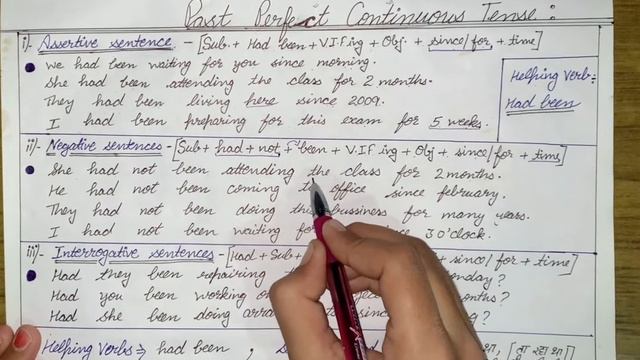 Past Perfect Continuous Tense :
i)- Assertive sentence - [Sub + Had been + V.I.F ing + Obj. + since/for + time]
we had been waiting for you since morning.
She had been attending the class for 2 months.
They had been living here since 2009.
I had been preparing for this exam for 5 weeks.
Helping Verb =
Had been
ii)- Negative sentences - [Sub + had + not + been + V.I.F ing + Obj + since/for + time]
She had not been attending the class for 2 months.
He had not been coming to office since february.
They had not been doing this bussiness for many years.
I had not been waiting for since 3 o'clock.
iii)- Interrogative sentences - [Had + Sub + since/for + time]
Had they been repairing
Had you been working months?
Had she been doing
Helping Verbs ⇒ had been,